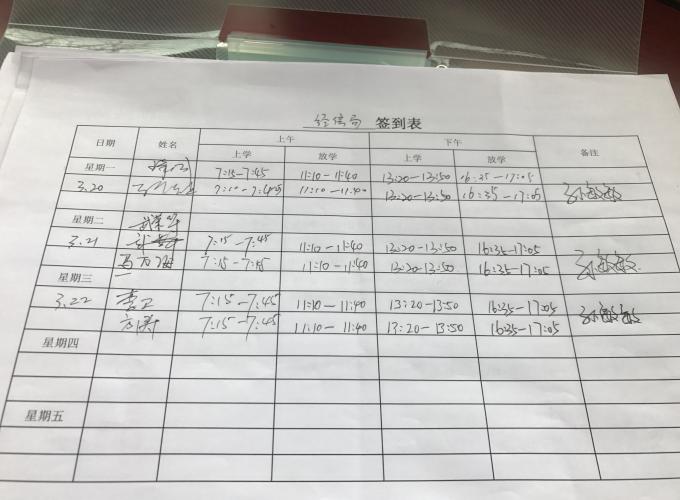 经信局 签到表
日期 姓名 上午 下午 备注
上学 放学 上学 放学
星期一 7:15-7:45 11:10-11:40 13:20-13:50 16:35-17:05
3.20 7:10-7:45 11:10-11:40 13:20-13:50 16:35-17:05
星期二
3.21 7:15-7:45 11:10-11:40 13:20-13:50 16:35-17:05
7:15-7:45 11:10-11:40 13:20-13:50 16:35-17:05
星期三
3.22 李卫 7:15-7:45 11:10-11:40 13:20-13:50 16:35-17:05
7:15-7:45 11:10-11:40 13:20-13:50 16:35-17:05
星期四
星期五